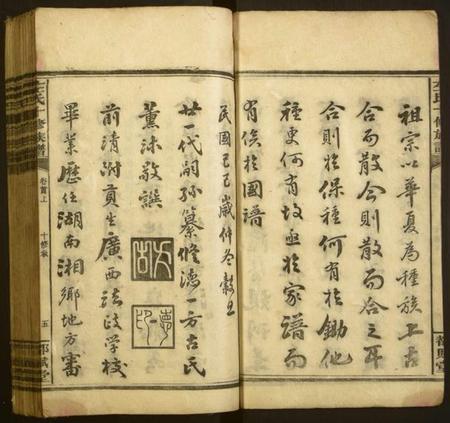 祖宗以華夏為種族上古
合而散今則散而合之耳
合則於保種何有於鋤他
種更何有故亟於家譜而
有俟於國譜
民國己巳歲仲冬穀旦
廿一代嗣孫纂修德一方古氏
薰沐敬譔
前清附貢生廣西法政學校
畢業歷任湖南湘鄉地方審
左氏
修族譜
卷首上
十修
五